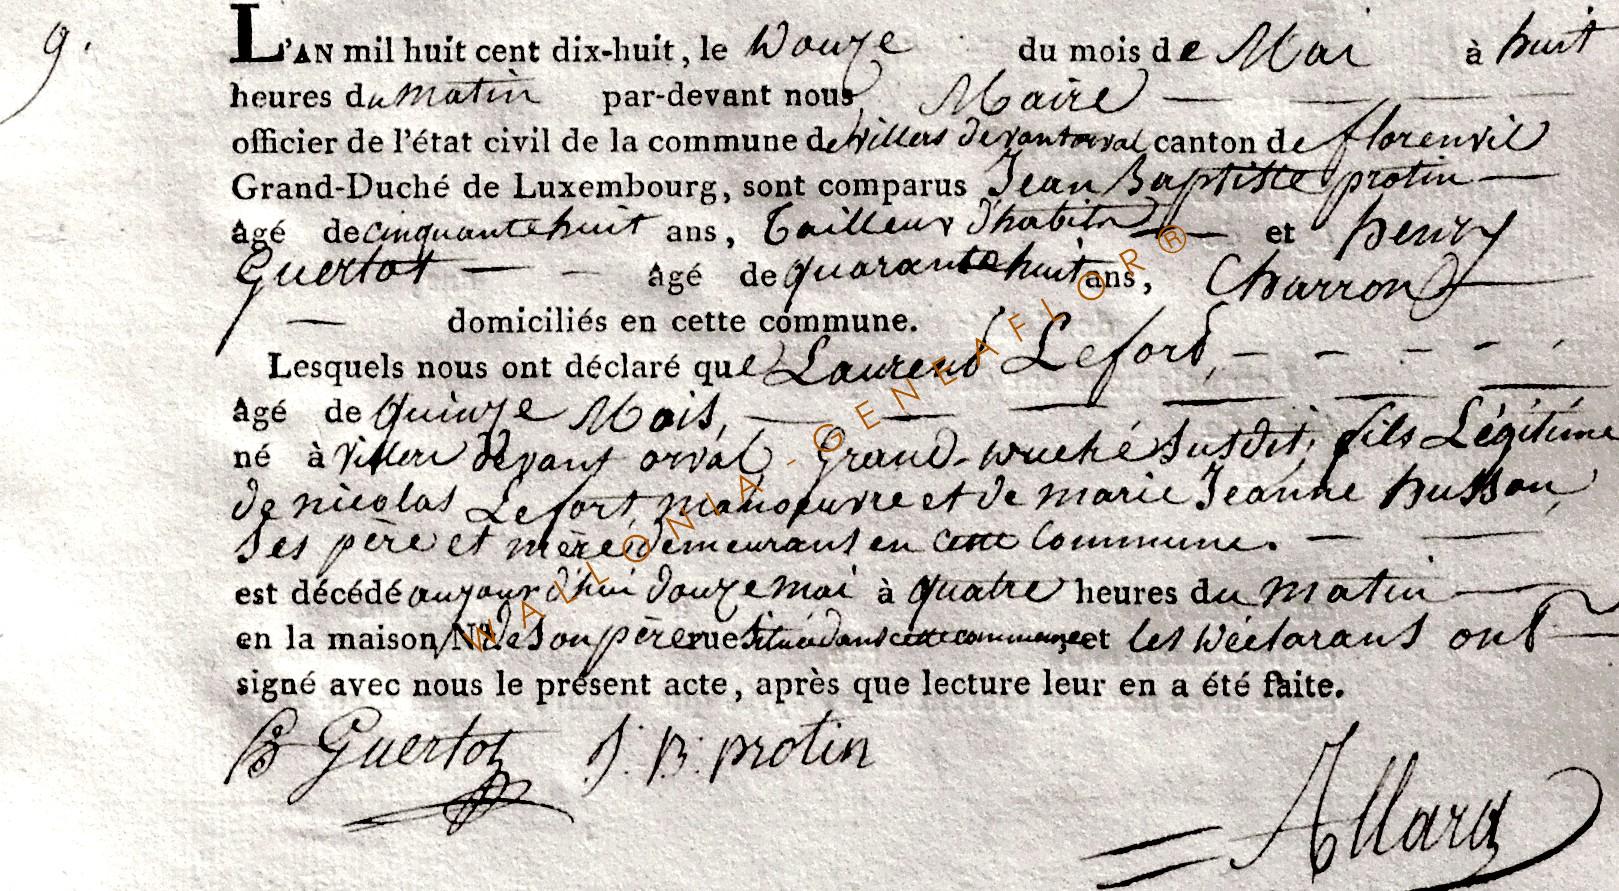 9.
L'AN mil huit cent dix-huit, le Douze du mois de Mai à huit
heures du matin par-devant nous Maire
officier de l'état civil de la commune de villers devant orval canton de florenvil
Grand-Duché de Luxembourg, sont comparus Jean Baptiste protin
âgé de cinquante huit ans, Tailleur d'habits et henry
Guertot âgé de quarante huit ans, Charron
domiciliés en cette commune.
Lesquels nous ont déclaré que Laurent Lefort,
âgé de Quinze Mois,
né à villers devant orval Grand-Duché Susdit, fils Légitime
de nicolas Lefort, manoeuvre et de marie Jeanne husson,
Ses père et mère demeurant en cette Commune.
est décédé aujourd'hui douze mai à quatre heures du matin
en la maison N.º de Son père rue Située dans cette commune, et les Déclarans ont
signé avec nous le présent acte, après que lecture leur en a été faite.
Guertot J: B: protin
Allard
WALLONIA - GENEAFLOR®